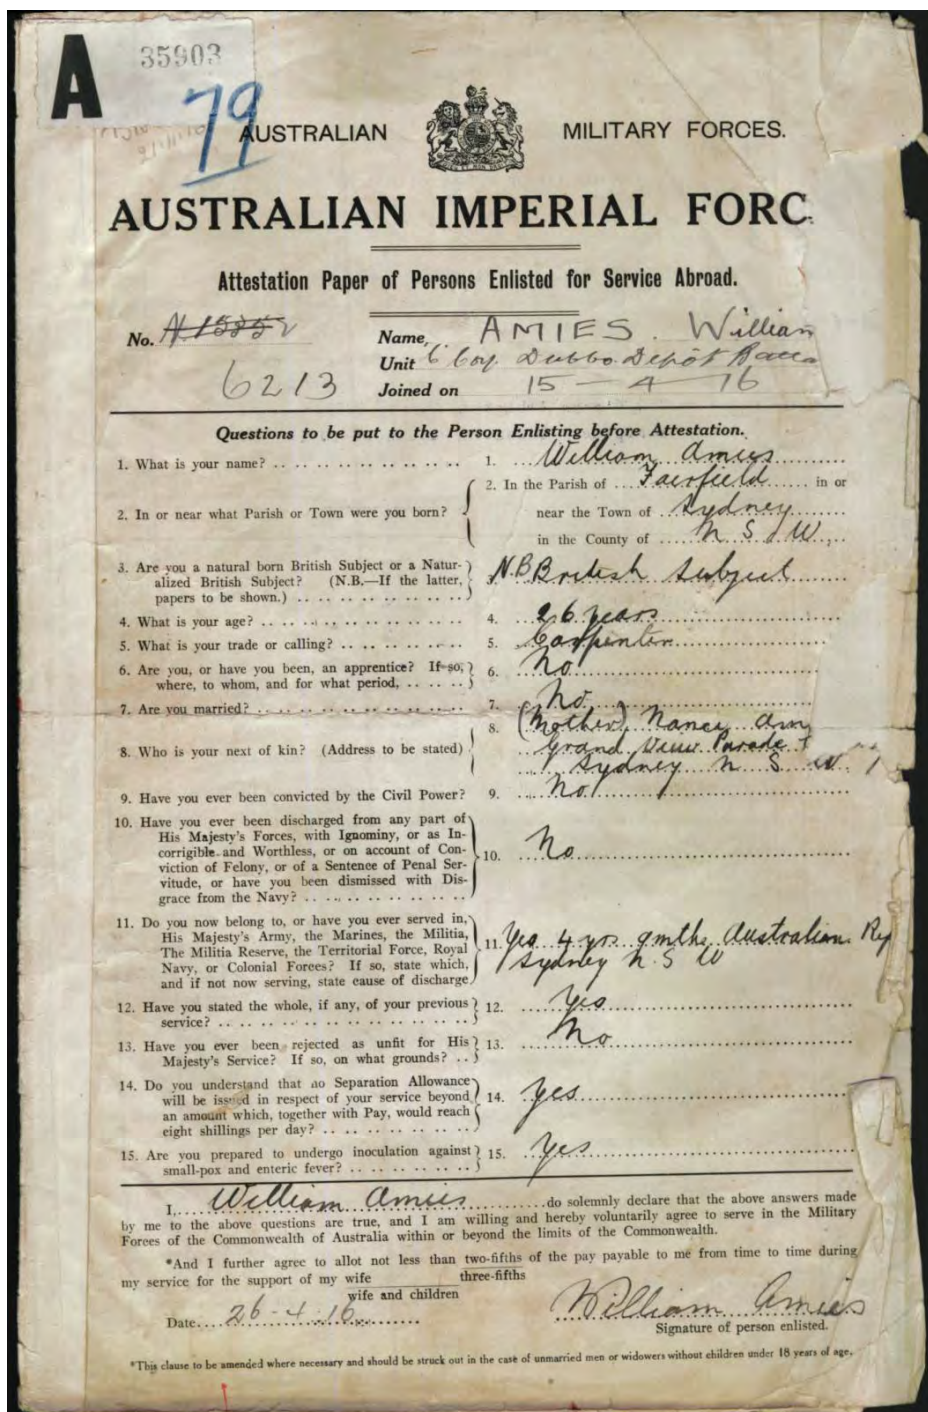 A 35903
79
AUSTRALIAN MILITARY FORCES.
AUSTRALIAN IMPERIAL FORC
Attestation Paper of Persons Enlisted for Service Abroad.
No. N.15852
Name, AMIES. William
Unit C Coy Dubbo Depôt
6213
Joined on 15-4-16
Questions to be put to the Person Enlisting before Attestation.
1. What is your name? 1. William Amies
2. In or near what Parish or Town were you born? 2. In the Parish of Fairfield in or
near the Town of Sydney
in the County of N S W,
3. Are you a natural born British Subject or a Natur-
alized British Subject? (N.B.—If the latter,
papers to be shown.) N.B British Subject
4. What is your age? 4. 26 years
5. What is your trade or calling? 5. Carpenter
6. Are you, or have you been, an apprentice? If so,
where, to whom, and for what period, 6. No
7. Are you married? 7. No.
8. Who is your next of kin? (Address to be stated) 8. (Mother) Nancy Am
Grand View Parade
Sydney N S W
9. Have you ever been convicted by the Civil Power? 9. No
10. Have you ever been discharged from any part of
His Majesty's Forces, with Ignominy, or as In-
corrigible and Worthless, or on account of Con-
viction of Felony, or of a Sentence of Penal Ser-
vitude, or have you been dismissed with Dis-
grace from the Navy? 10. No
11. Do you now belong to, or have you ever served in,
His Majesty's Army, the Marines, the Militia,
The Militia Reserve, the Territorial Force, Royal
Navy, or Colonial Forces? If so, state which,
and if not now serving, state cause of discharge 11. Yes 4 yrs 9mths Australian Reg
Sydney N S W
12. Have you stated the whole, if any, of your previous
service? 12. Yes
13. Have you ever been rejected as unfit for His
Majesty's Service? If so, on what grounds? 13. No
14. Do you understand that no Separation Allowance
will be issued in respect of your service beyond
an amount which, together with Pay, would reach
eight shillings per day? 14. Yes
15. Are you prepared to undergo inoculation against
small-pox and enteric fever? 15. Yes
I, William Amies do solemnly declare that the above answers made
by me to the above questions are true, and I am willing and hereby voluntarily agree to serve in the Military
Forces of the Commonwealth of Australia within or beyond the limits of the Commonwealth.
*And I further agree to allot not less than two-fifths of the pay payable to me from time to time during
three-fifths
my service for the support of my wife
wife and children
Date 26-4-16
William Amies
Signature of person enlisted.
*This clause to be amended where necessary and should be struck out in the case of unmarried men or widowers without children under 18 years of age.